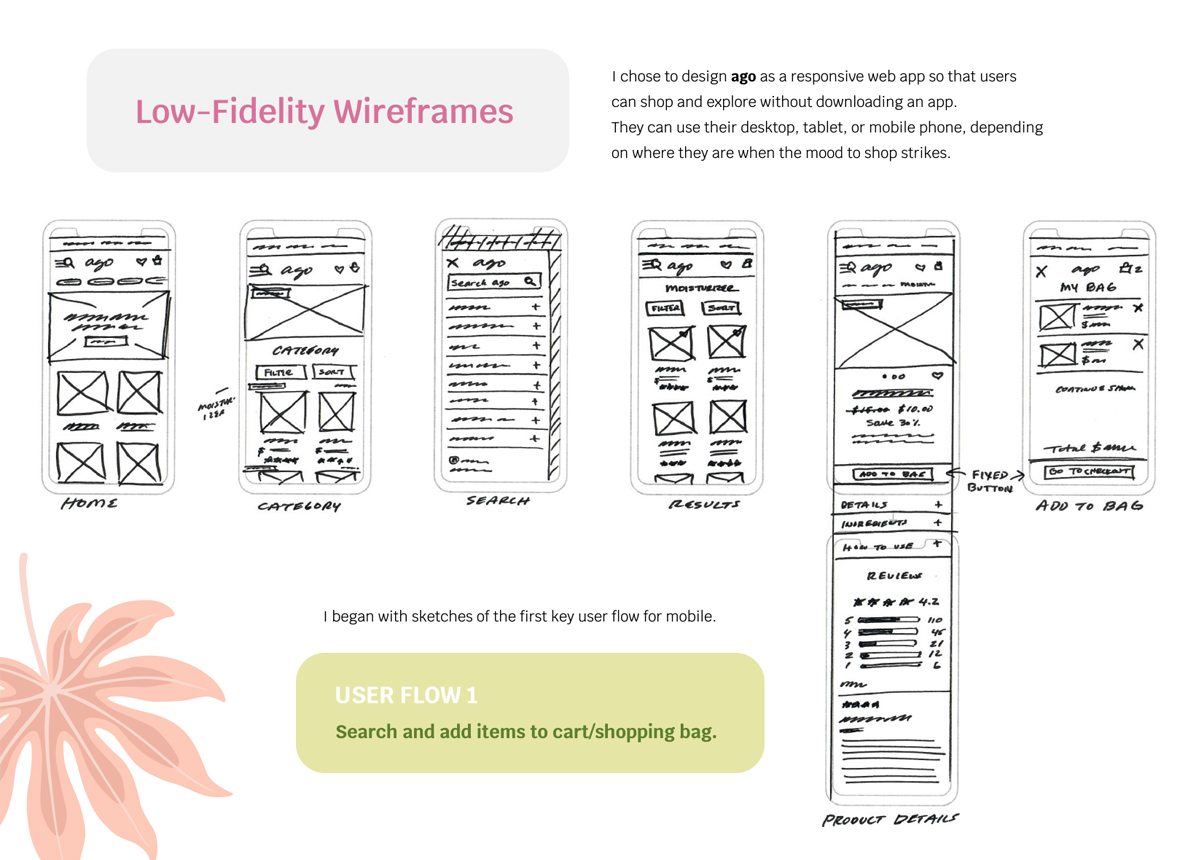 Low-Fidelity Wireframes
I chose to design ago as a responsive web app so that users
can shop and explore without downloading an app.
They can use their desktop, tablet, or mobile phone, depending
on where they are when the mood to shop strikes.
ago
HOME
MOISTUR-
IZER
ago
CATEGORY
FILTER SORT
$
CATEGORY
X ago
Search ago
+
+
+
+
+
+
+
+
SEARCH
ago
MOISTURIZER
FILTER SORT
$ $
RESULTS
ago
$15.00 $10.00
Save 30%
ADD TO BAG
DETAILS +
INGREDIENTS +
HOW TO USE +
REVIEWS
4.2
5 110
4 45
3 21
2 12
1 6
PRODUCT DETAILS
FIXED
BUTTON
X ago 2
MY BAG
X
$
X
$
CONTINUE
Total $
GO TO CHECKOUT
ADD TO BAG
I began with sketches of the first key user flow for mobile.
USER FLOW 1
Search and add items to cart/shopping bag.